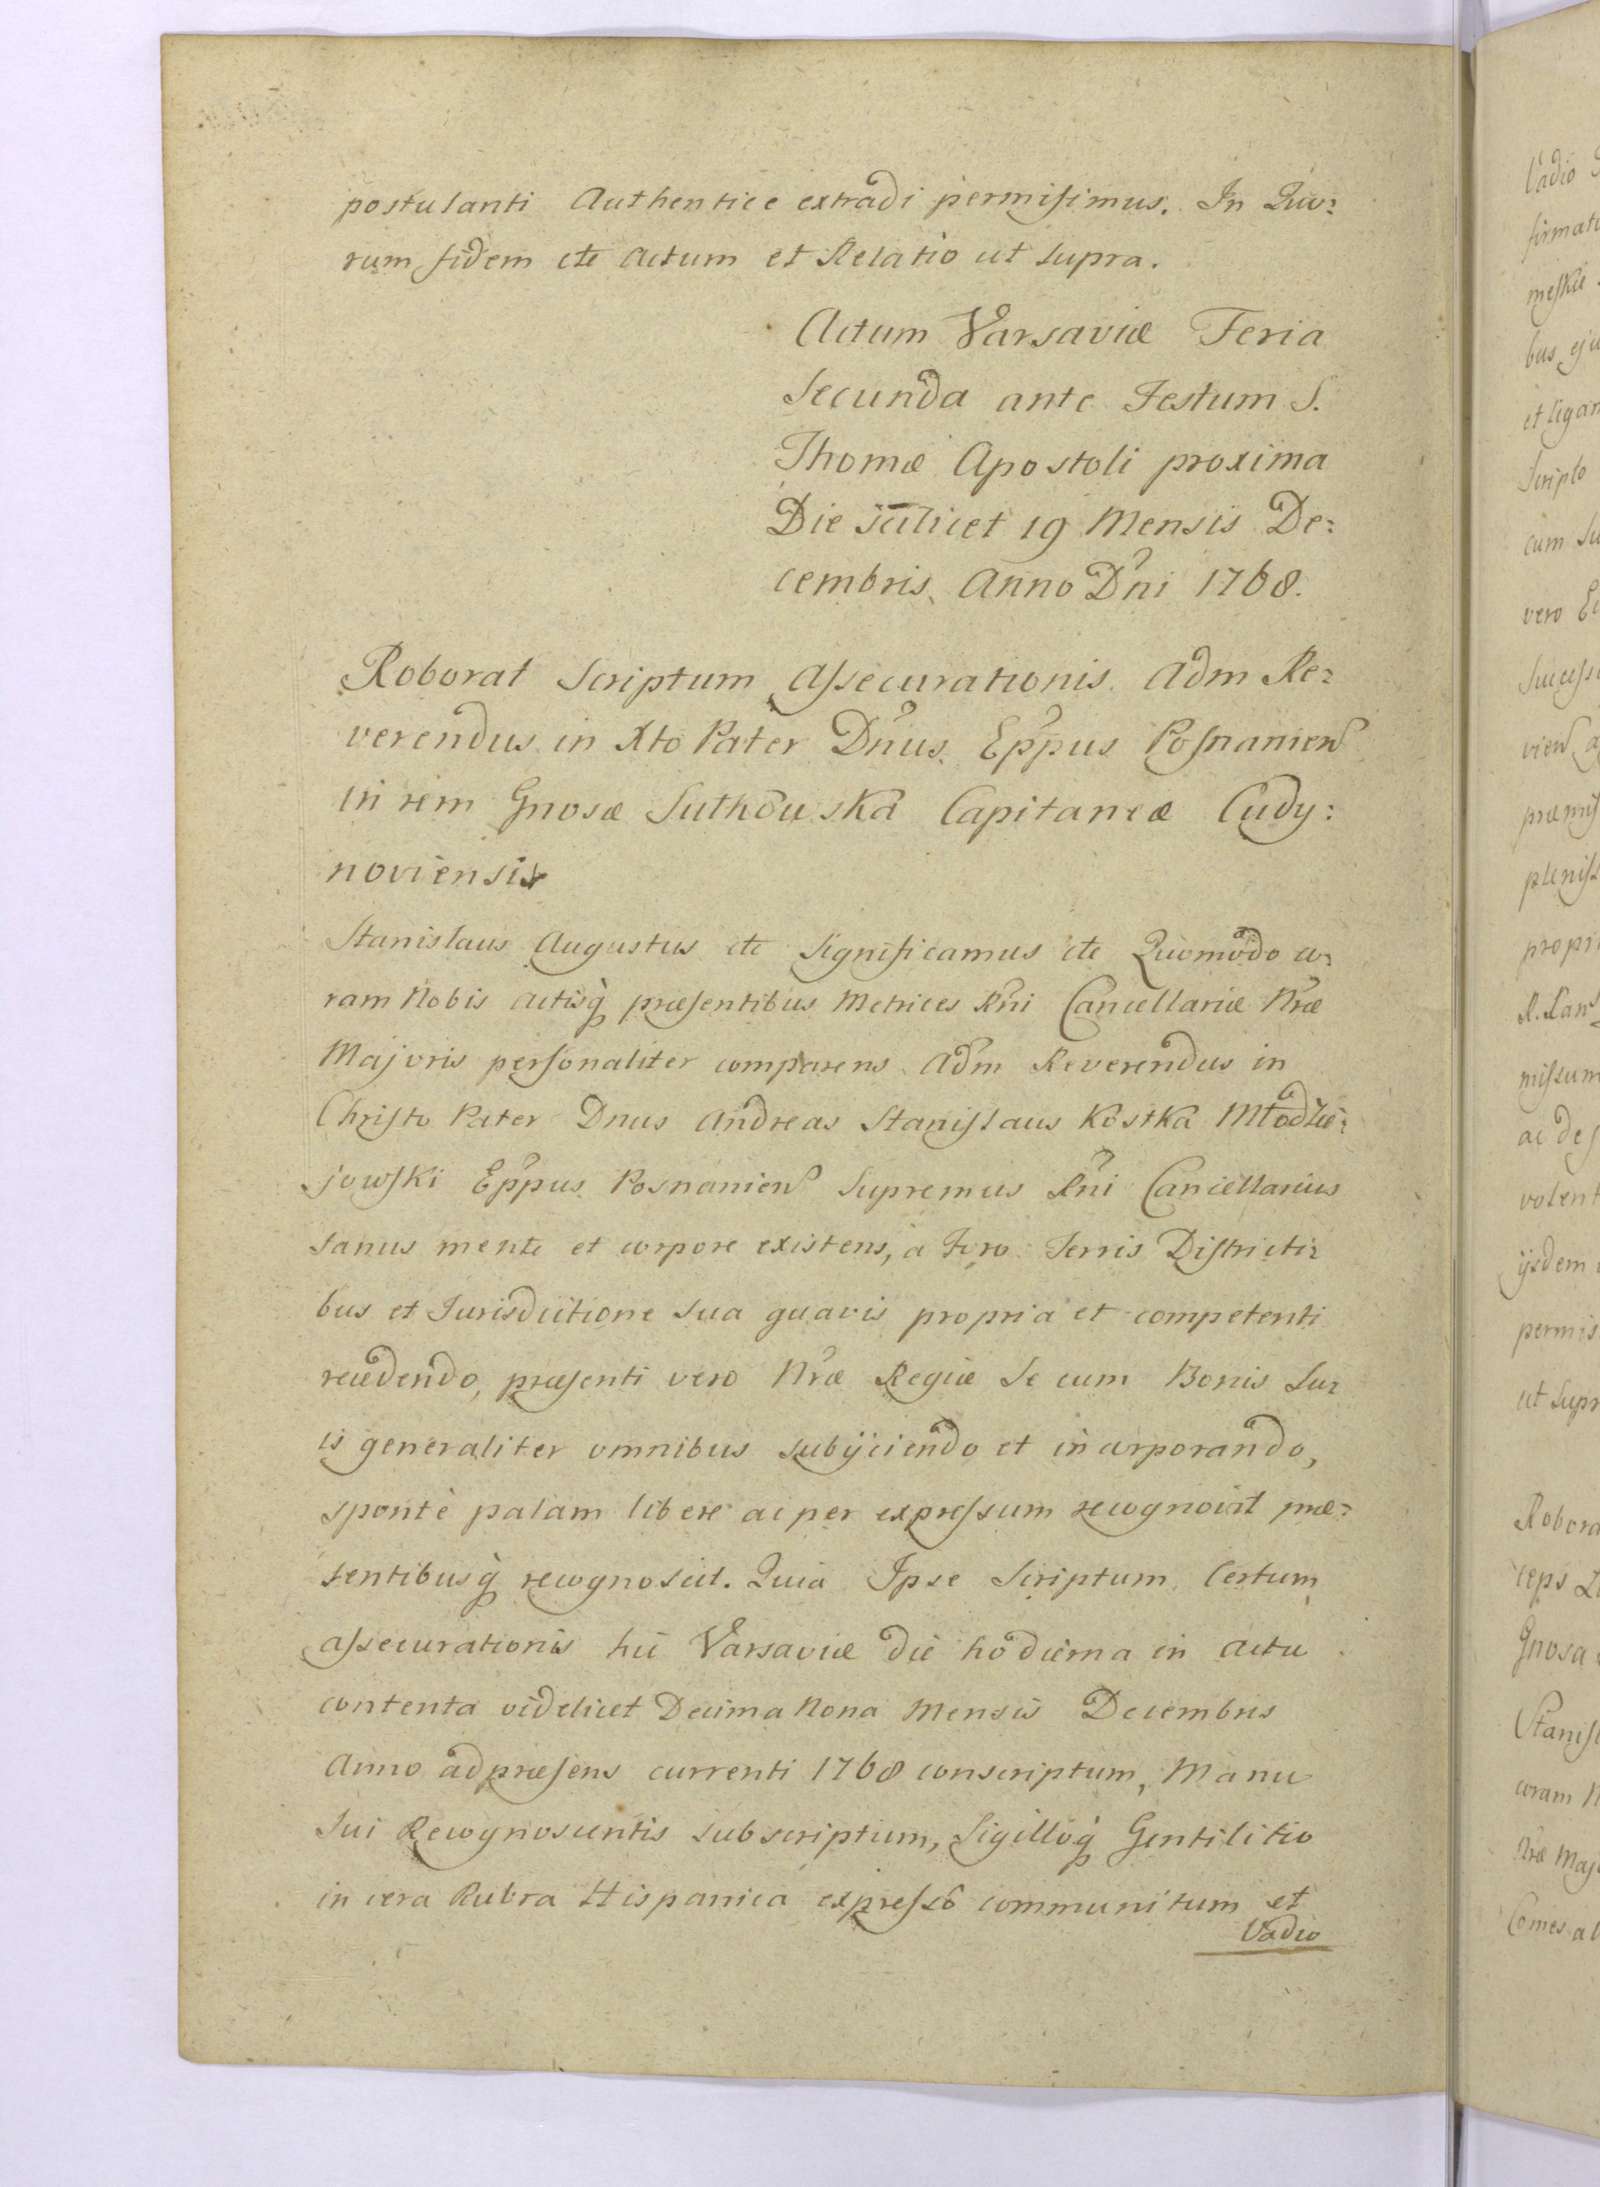 postulanti Authentice extradi permisimus. In Quo:
rum fidem etc Actum et Relatio ut supra.
Actum Varsaviæ Feria
Secunda ante Festum S.
Thomæ Apostoli proxima
Die scilicet 19 Mensis De:
cembris Anno Dni 1768.
Roborat Scriptum Assecurationis Adm Re:
verendus in Xto Pater Dnus Eppus Posnanien
in rem Gnosæ Sutkouska Capitaneæ Cudy:
noviensis
Stanislaus Augustus etc Significamus etc Quomodo co:
ram Nobis Actisq præsentibus Metrices Rni Cancellariæ Nræ
Majoris personaliter comparens Adm Reverendus in
Christo Pater Dnus Andreas Stanislaus Kostka Młodzie:
jowski Eppus Posnanien Supremus Rni Cancellarius
sanus mente et corpore existens, a Foro Terris Districti:
bus et Iurisdictione sua quavis propria et competenti
recedendo, præsenti vero Nræ Regiæ Se cum Bonis Su:
is generaliter omnibus subijciendo et incorporando,
sponte palam libere ac per expressum recognovit præ:
sentibusq recognoscit. Quia Ipse Scriptum Certum
assecurationis hic Varsaviæ die hodierna in Actu
contenta videlicet Decima Nona Mensis Decembris
Anno ad præsens currenti 1768 conscriptum, Manu
Sui Recognoscentis subscriptum, Sigilloq Gentilitio
in cera Rubra Hispanica expresso communitum et
Vadio